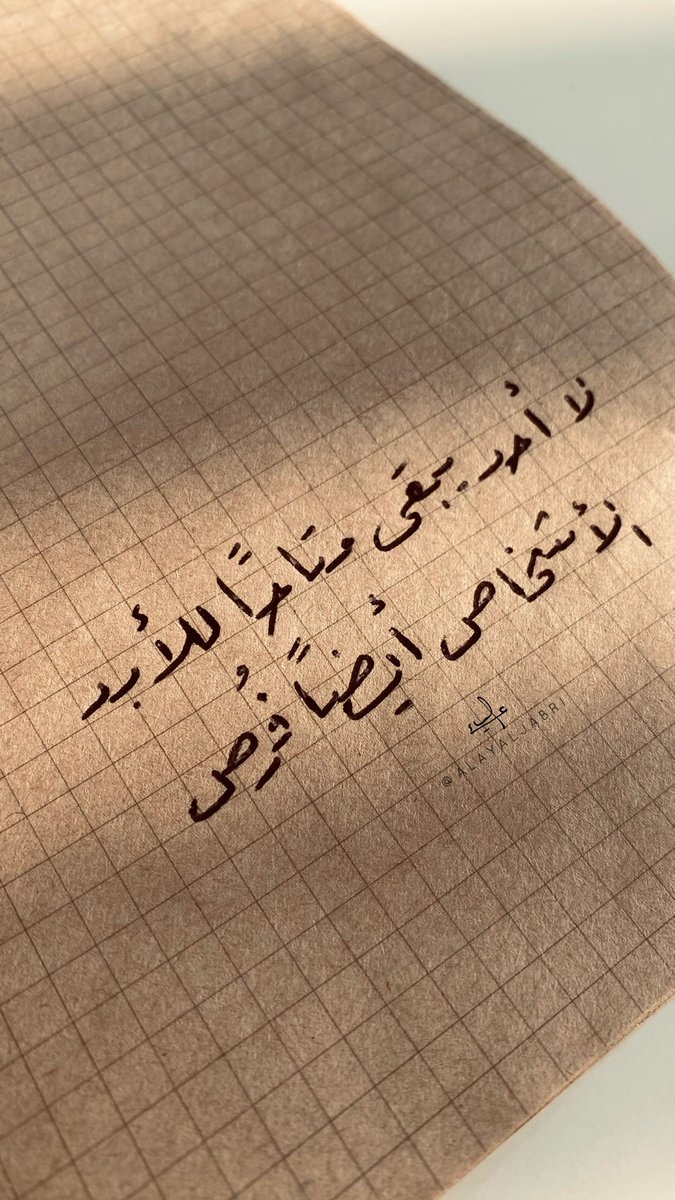 لا أحد يبقى متاحًا للأبد
الأشخاص أيضاً فُرص
@ALAYA_JABRI